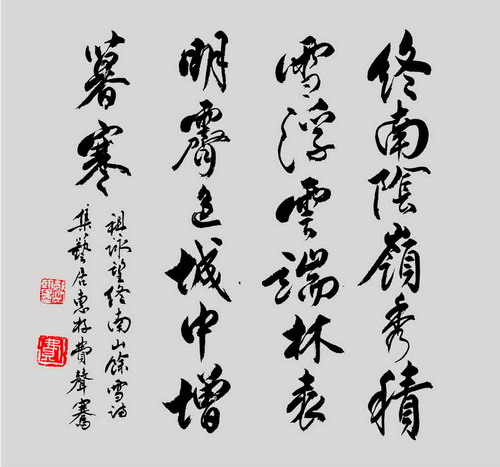 終南陰嶺秀積
雪浮雲端林表
明霽色城中增
暮寒
祖詠望終南山餘雪詩
集藝居惠存費聲騫